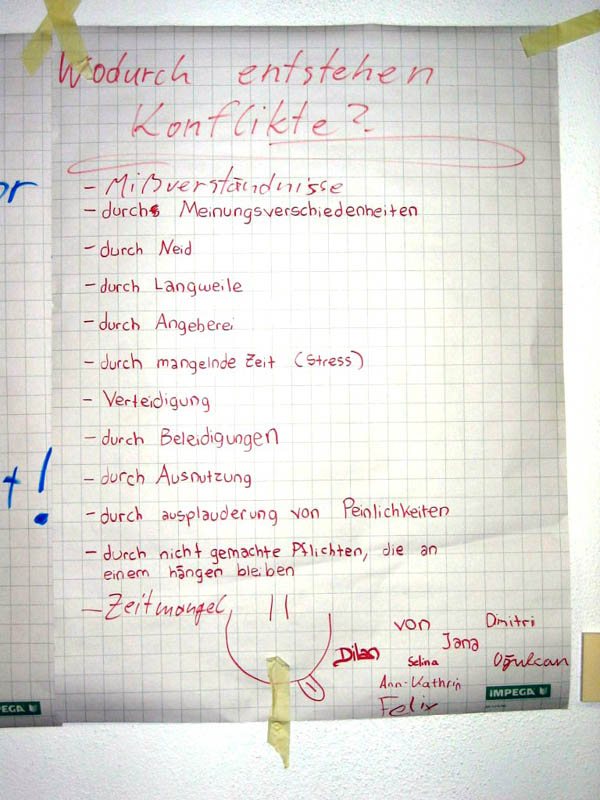 Wodurch entstehen
Konflikte?
- Mißverständnisse
- durch Meinungsverschiedenheiten
- durch Neid
- durch Langweile
- durch Angeberei
- durch mangelnde Zeit (Stress)
- Verteidigung
- durch Beleidigungen
- durch Ausnutzung
- durch ausplauderung von Peinlichkeiten
- durch nicht gemachte Pflichten, die an
einem hängen bleiben
- Zeitmangel
von Dimitri
Jana
Dilan Selina Oğulcan
Ann-Kathrin
Felix
IMPEGA